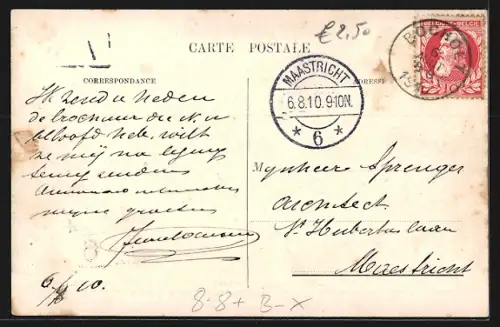 €2.50
CARTE POSTALE
CORRESPONDANCE
ADRESSE
MAASTRICHT
6.8.10.9-10N.
* 6 *
Ik zend u heden
de brochure die ik u
beloofd heb, wilt
ze mij na lezing
terug zenden
groeten
6/8 10.
Mijnheer Sprenger
Architect
St Hubertus laan
Maestricht
8-8+ B-X